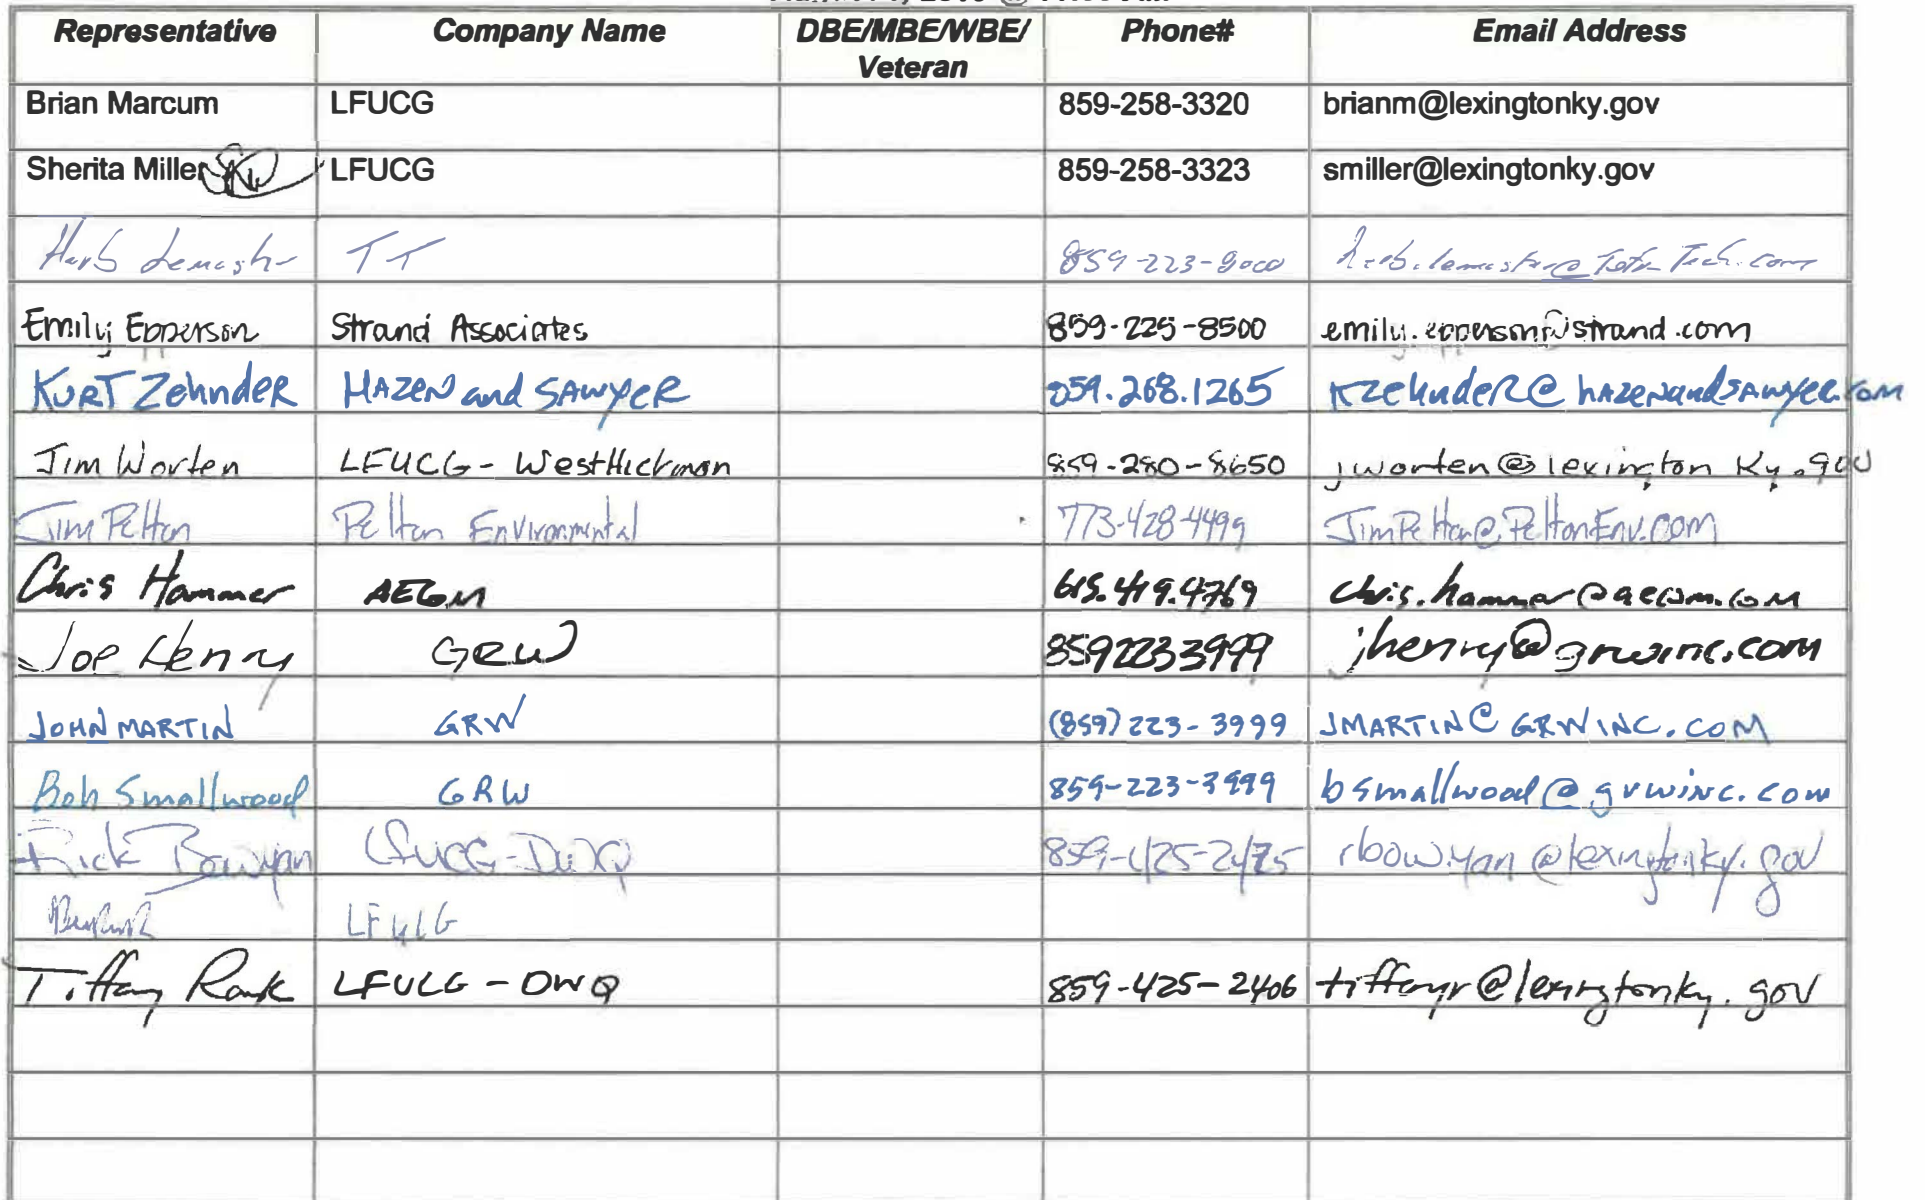 Representative Company Name DBE/MBE/WBE/ Phone# Email Address
Veteran
Brian Marcum LFUCG 859-258-3320 brianm@lexingtonky.gov
Sherita Miller LFUCG 859-258-3323 smiller@lexingtonky.gov
Herb Lemaster TT 859-223-8000 herb.lemaster@TetraTech.com
Emily Epperson Strand Associates 859-225-8500 emily.epperson@strand.com
KURT Zehnder HAZEN and SAWYER 859.268.1265 KZehndeR@hAZENandSAWyeR.com
Jim Worten LFUCG - West Hickman 859-280-8650 jworten@lexington Ky.gov
Jim Pelton Pelton Environmental 773-428-4499 JimPelton@PeltonEnv.com
Chris Hammer AECOM 615.419.4769 chris.hammer@aecom.com
Joe Henry GRW 8592233999 jhenry@grwinc.com
JOHN MARTIN GRW (859) 223-3999 JMARTIN@GRWINC.COM
Bob Smallwood GRW 859-223-3999 bsmallwood@grwinc.com
Rick Bowman LFUCG-DWQ 859-425-2475 @lexingtonky.gov
LFUCG
Tiffany Rank LFUCG - DWQ 859-425-2406 tiffanyr@lexingtonky.gov